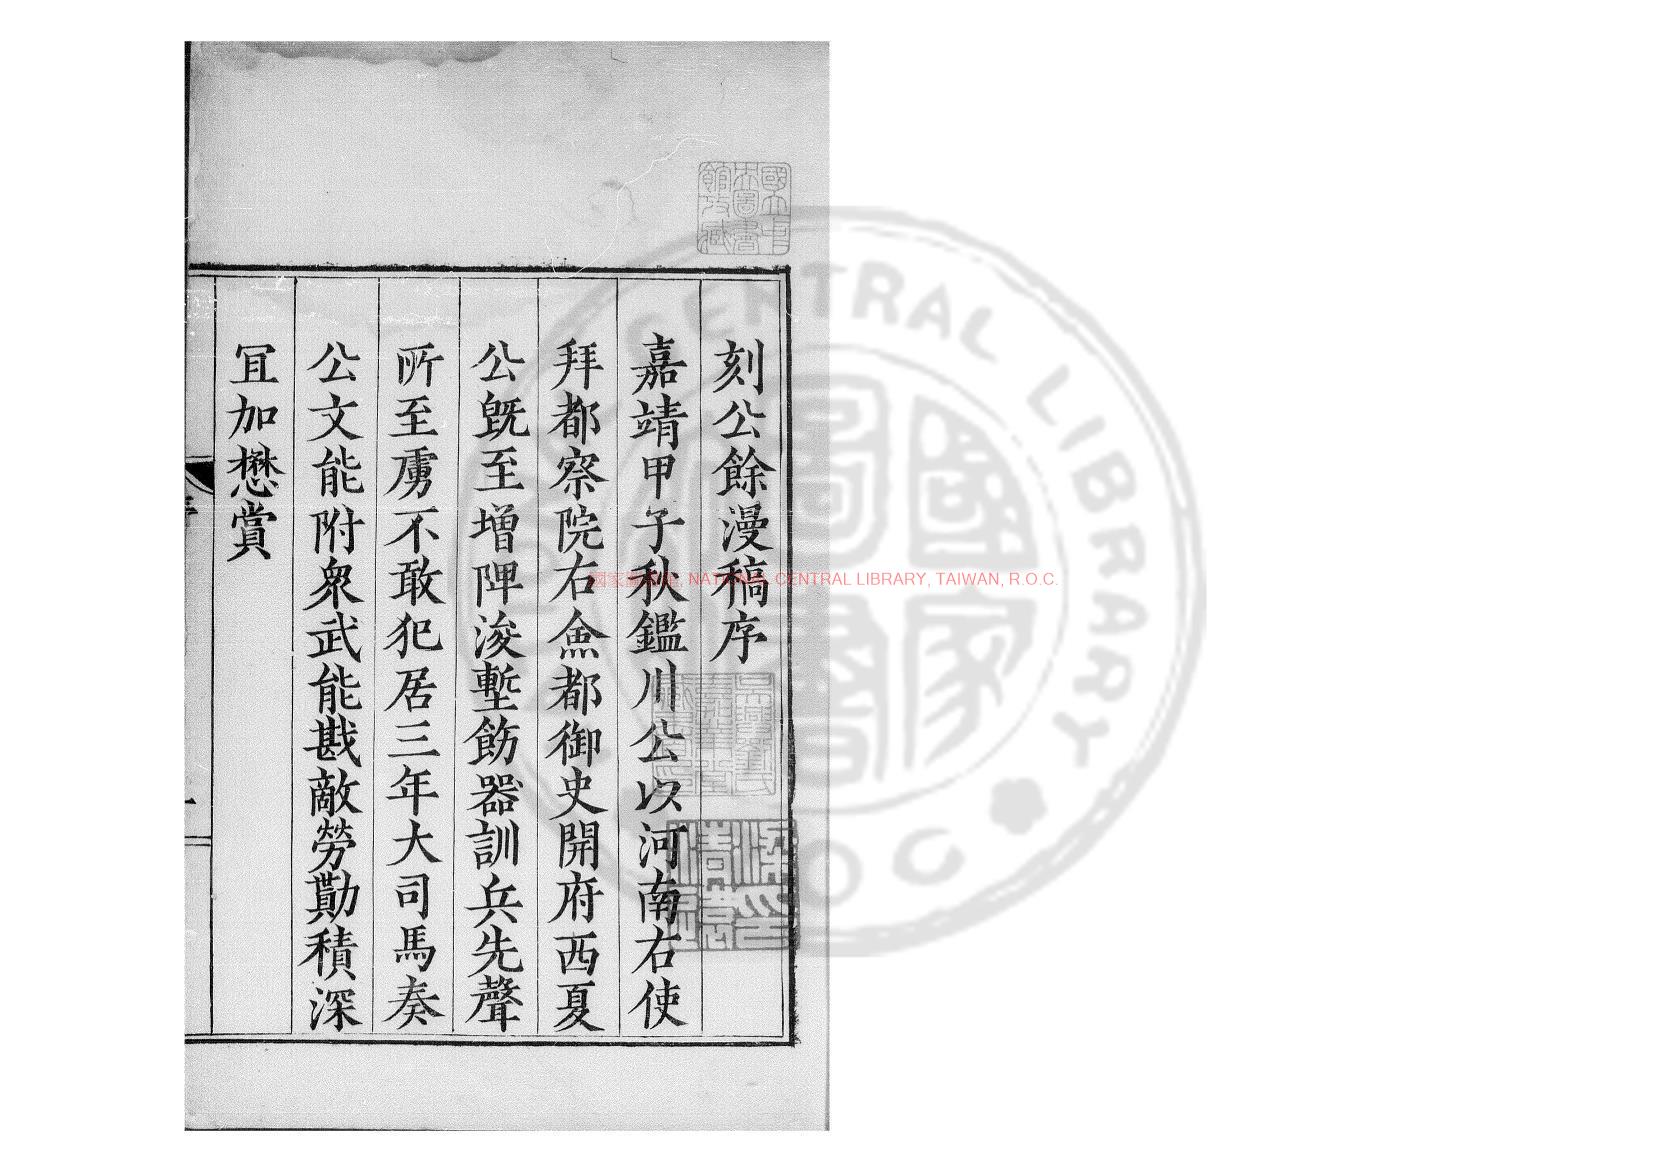 刻公餘漫稿序
嘉靖甲子秋鑑川公以河南右使
拜都察院右僉都御史開府西夏
公旣至增陴浚塹飭器訓兵先聲
所至虜不敢犯居三年大司馬奏
公文能附衆武能戡敵勞勩積深
冝加懋賞
國立中央圖書館收藏
國家圖書館, NATIONAL CENTRAL LIBRARY, TAIWAN, R.O.C.
CENTRAL LIBRARY
國家圖書